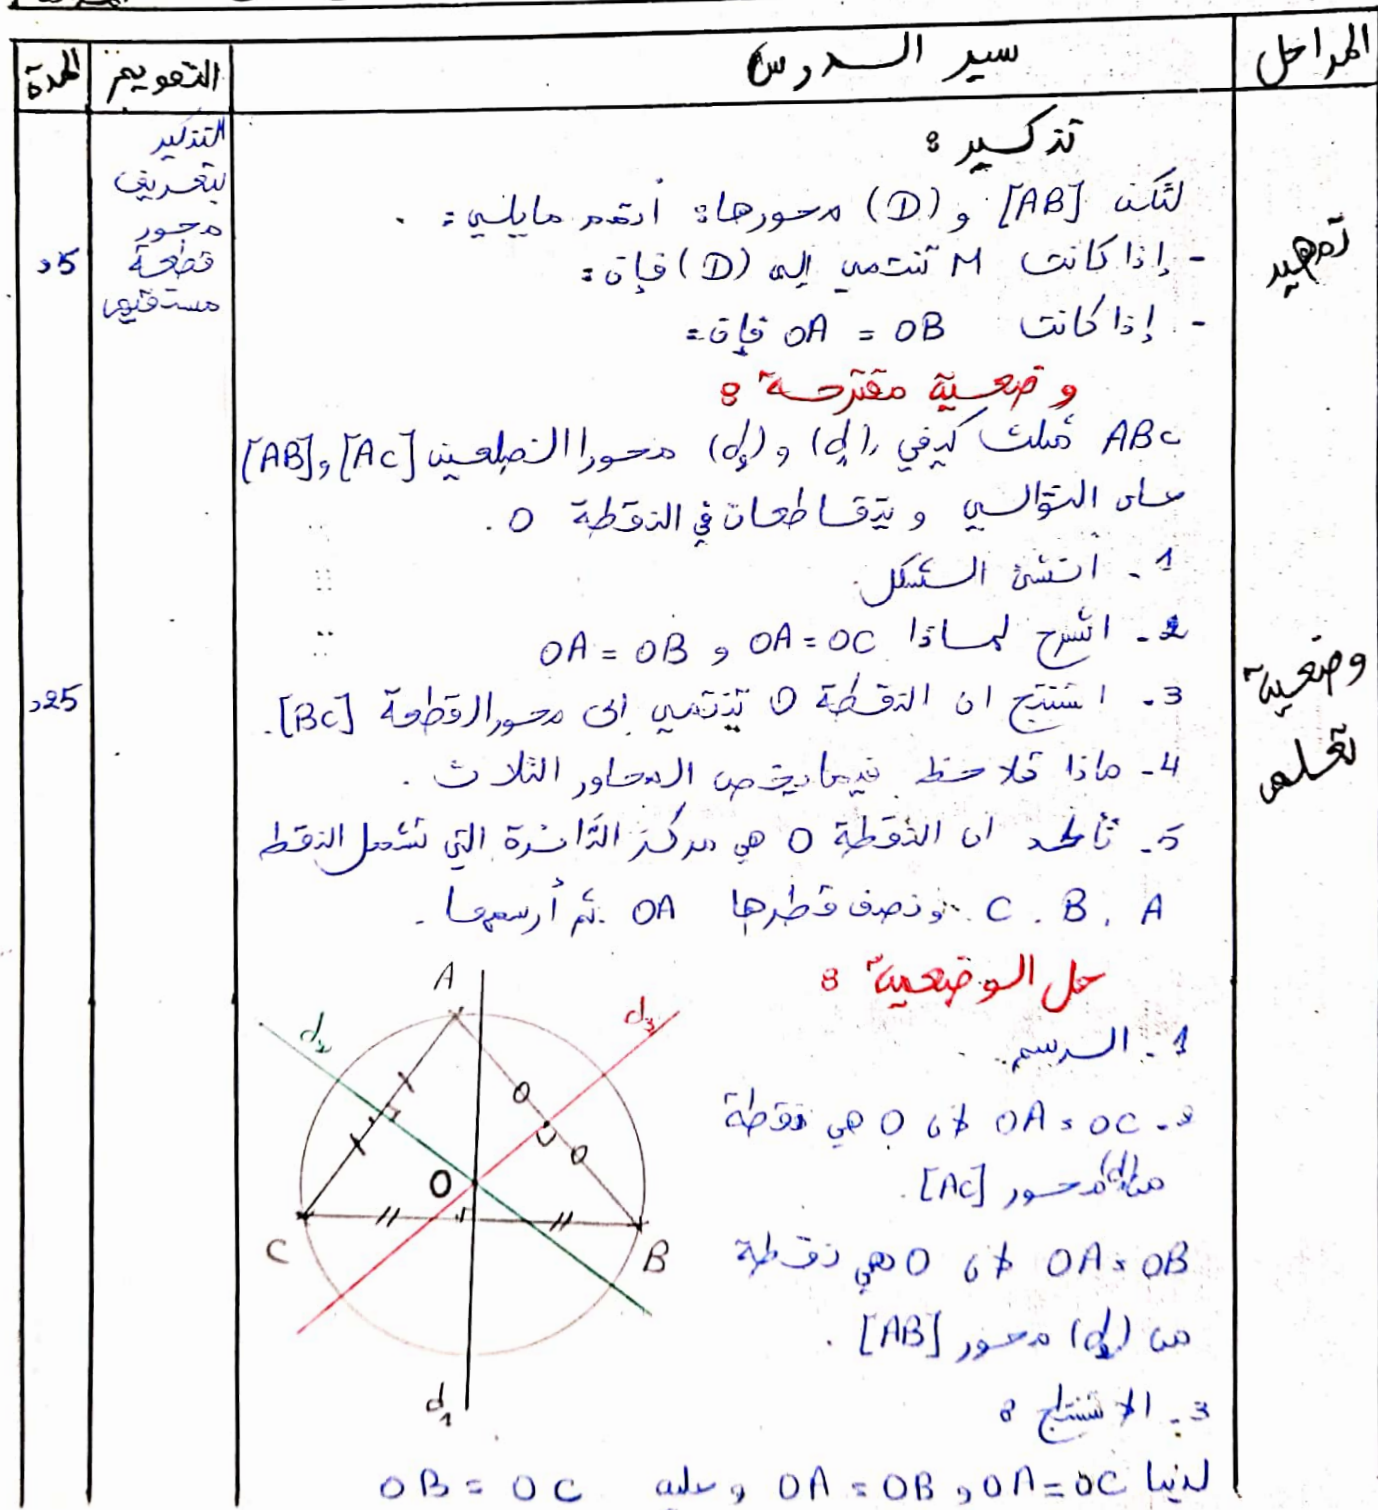 المراحل
سير الدرس
التقويم
المدة
تمهيد
تذكير :
لتكن [AB] و (D) محورها: أتمم مايلي :
- إذا كانت M تنتمي إلى (D) فإن :
- إذا كانت OA = OB فإن :
التذكير
بتعريف
محور
قطعة
مستقيم
5د
وضعية مقترحة :
ABC مثلث كيفي ، (d) و (d) محورا الضلعين [AC] و [AB]
على التوالي و يتقاطعان في النقطة O .
1 - انشئ الشكل
2 - اشرح لماذا OA = OC و OA = OB
3 - استنتج ان النقطة O تنتمي الى محور القطعة [BC].
4 - ماذا تلاحظ فيما يخص المحاور الثلاث .
5 - تأكد ان النقطة O هي مركز الدائرة التي تشمل النقط
A , B , C و نصف قطرها OA ثم أرسمها .
وضعية
تعلم
25د
حل الوضعية :
1 - الرسم .
2 - OA = OC لأن O هي نقطة
من (d) محور [AC] .
OA = OB لأن O هي نقطة
من (d) محور [AB] .
3 - الاستنتاج :
لدينا OA = OC و OA = OB و عليه OB = OC
A
d₂
d₃
O
C
B
d₁